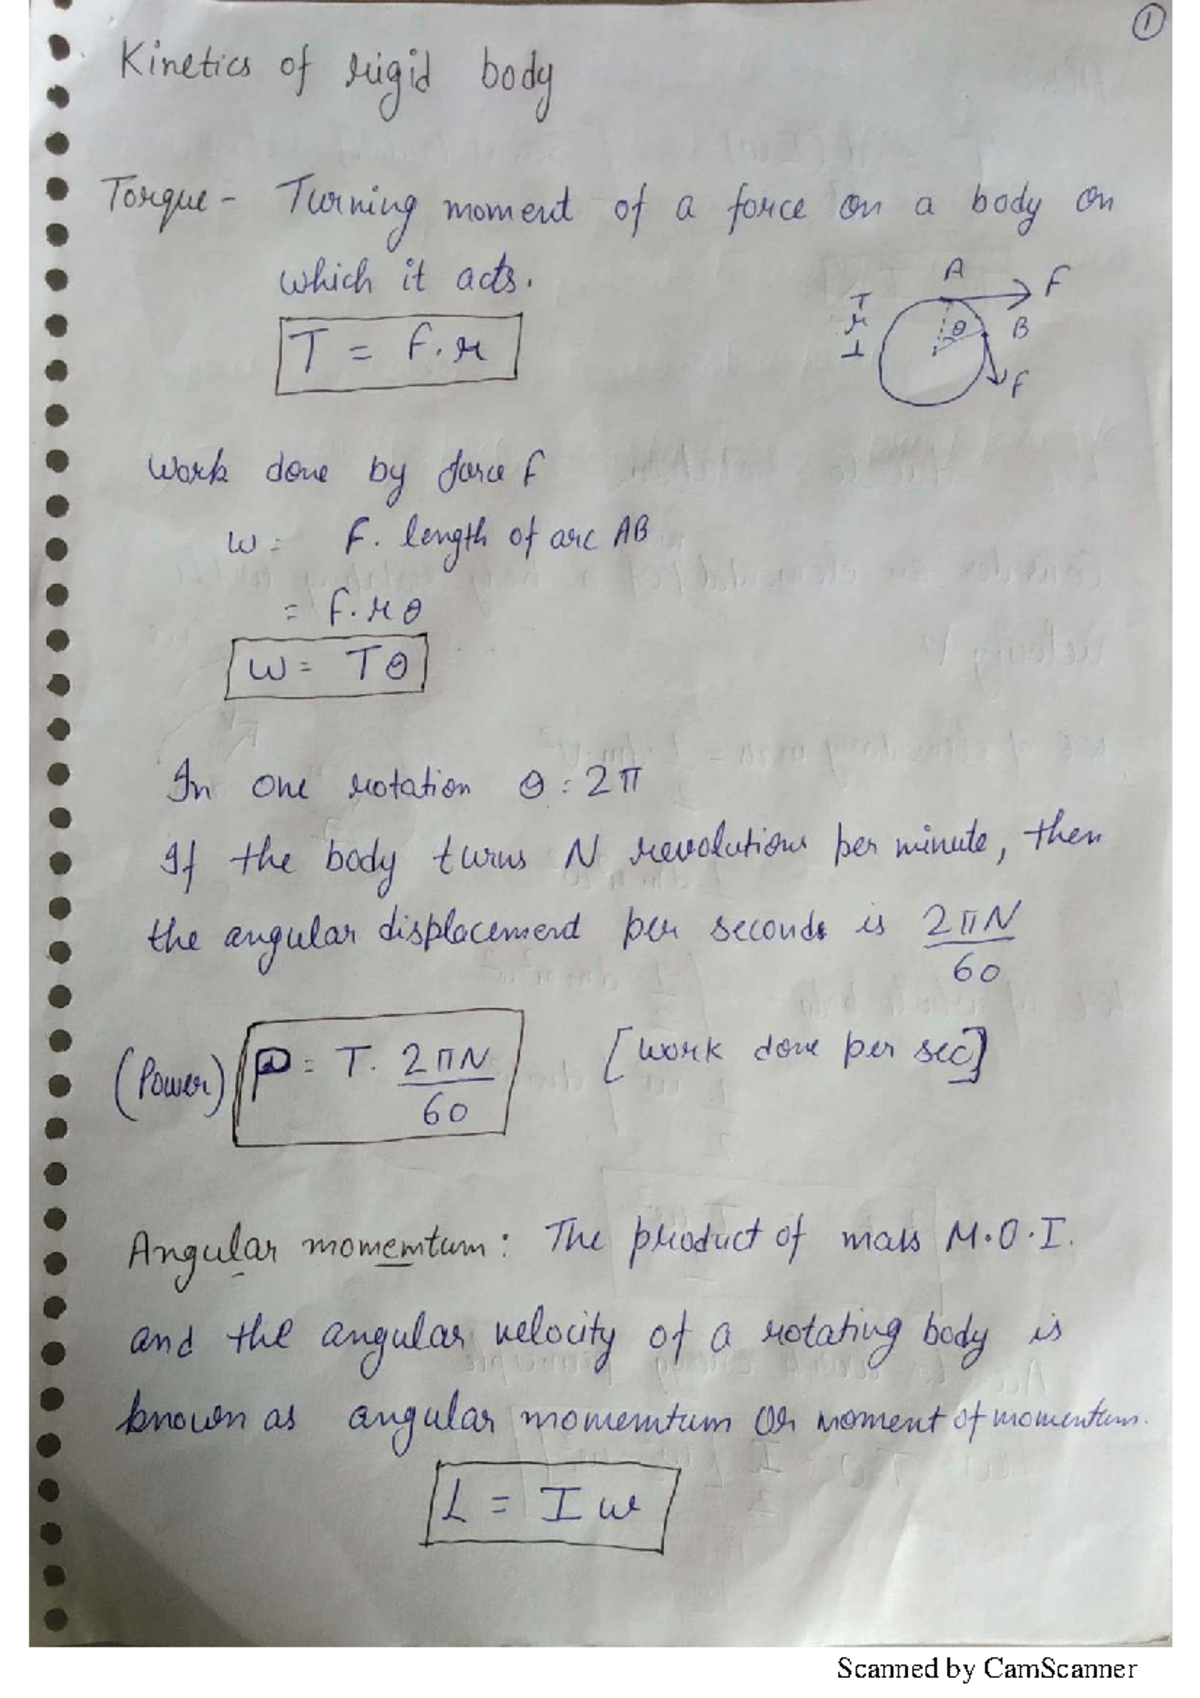 1
Kinetics of rigid body
Torque - Turning moment of a force on a body on
which it acts.
A F
T
r
⊥
θ B
F
T = F.r
Work done by force F
W = F. length of arc AB
= F.rθ
W = Tθ
In one rotation θ = 2π
If the body turns N revolutions per minute, then
the angular displacement per seconds is 2πN
60
(Power) P = T. 2πN [Work done per sec]
60
Angular momemtum: The product of mass M.O.I.
and the angular velocity of a rotating body is
known as angular momemtum or moment of momentum.
L = I ω
Scanned by CamScanner